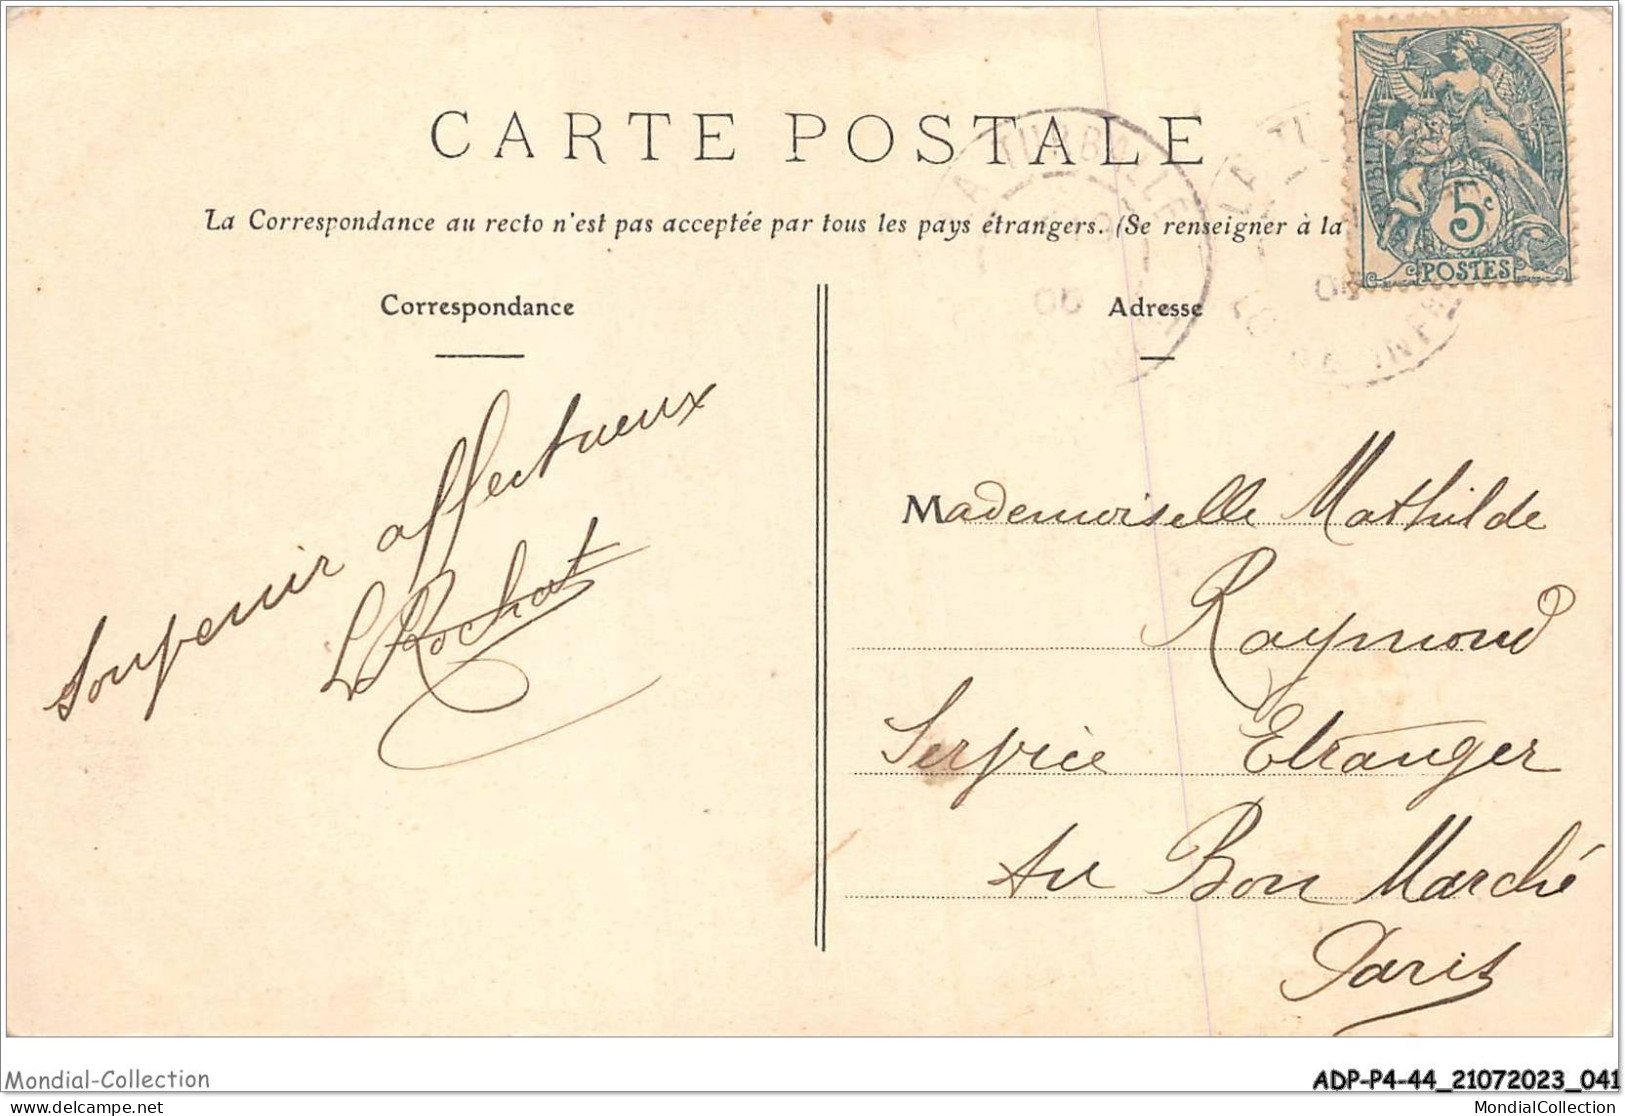 CARTE POSTALE
La Correspondance au recto n'est pas acceptée par tous les pays étrangers. (Se renseigner à la
RÉPUBLIQUE FRANÇAISE
5c
POSTES
LA TURBALLE
06
LA TU
06
LOIRE INFRE
Correspondance
Adresse
Souvenir affectueux
L Rochat
Mademoiselle Mathilde
Raymond
Service Etranger
Au Bon Marché
Paris
Mondial-Collection
ADP-P4-44_21072023_041
delcampe.net
MondialCollection